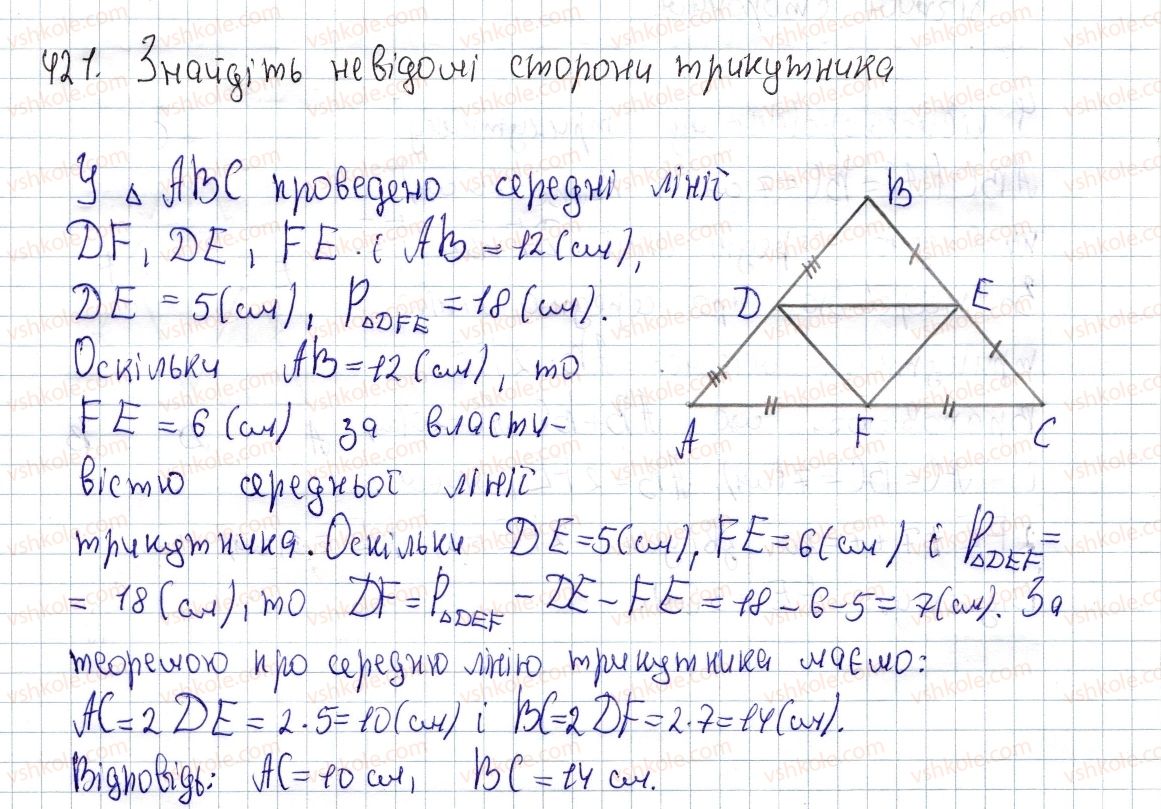 421. Знайдіть невідомі сторони трикутника
У △ ABC проведено середні лінії
DF, DE, FE і AB = 12 (см),
DE = 5 (см), P△DFE = 18 (см).
Оскільки AB = 12 (см), то
FE = 6 (см) за власти-
вістю середньої лінії
трикутника. Оскільки DE = 5 (см), FE = 6 (см) і P△DEF =
= 18 (см), то DF = P△DEF − DE − FE = 18 − 6 − 5 = 7 (см). За
теоремою про середню лінію трикутника маємо:
AC = 2 DE = 2 · 5 = 10 (см) і BC = 2 DF = 2 · 7 = 14 (см).
Відповідь: AC = 10 см, BC = 14 см.
B
D E
A F C
vshkole.com